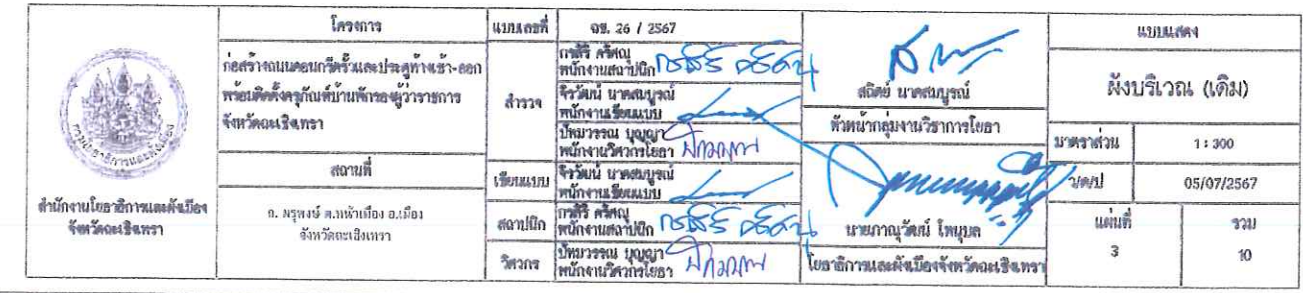 กรมโยธาธิการและผังเมือง
สำนักงานโยธาธิการและผังเมือง
จังหวัดฉะเชิงเทรา
โครงการ
ก่อสร้างถนนคอนกรีตรั้วและประตูทางเข้า-ออก
พร้อมติดตั้งครุภัณฑ์บ้านพักรองผู้ว่าราชการ
จังหวัดฉะเชิงเทรา
สถานที่
ถ. มรุพงษ์ ต.หน้าเมือง อ.เมือง
จังหวัดฉะเชิงเทรา
แบบเลขที่
ฉช. 26 / 2567
สำรวจ
กรสิริ ศรีศณุ
พนักงานสถาปนิก
จิรวัฒน์ นาคสมบูรณ์
พนักงานเขียนแบบ
ปัทมวรรณ บุญญา
พนักงานวิศวกรโยธา
เขียนแบบ
จิรวัฒน์ นาคสมบูรณ์
พนักงานเขียนแบบ
สถาปนิก
กรสิริ ศรีศณุ
พนักงานสถาปนิก
วิศวกร
ปัทมวรรณ บุญญา
พนักงานวิศวกรโยธา
สถิตย์ นาคสมบูรณ์
หัวหน้ากลุ่มงานวิชาการโยธา
นายภาณุวัฒน์ โทนุบล
โยธาธิการและผังเมืองจังหวัดฉะเชิงเทรา
แบบแสดง
ผังบริเวณ (เดิม)
มาตราส่วน
1 : 300
ว/ด/ป
05/07/2567
แผ่นที่
รวม
3
10